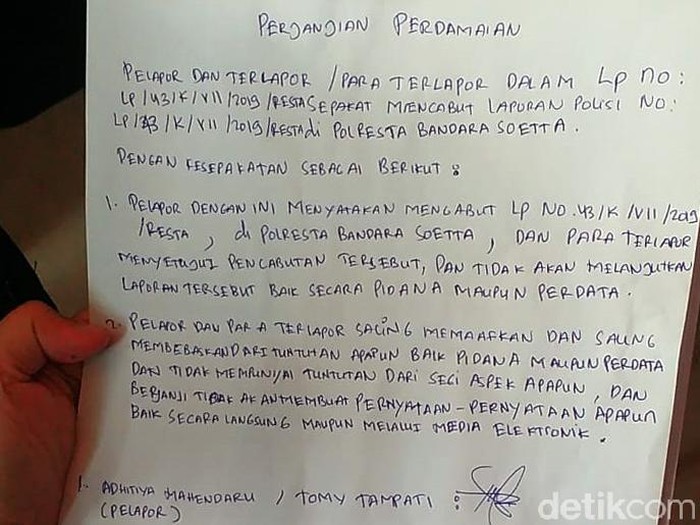 PERJANJIAN PERDAMAIAN
PELAPOR DAN TERLAPOR / PARA TERLAPOR DALAM LP NO:
LP/43/K/VII/2019/RESTA SEPAKAT MENCABUT LAPORAN POLISI NO:
LP/43/K/VII/2019/RESTA di POLRESTA BANDARA SOETTA.
DENGAN KESEPAKATAN SEBAGAI BERIKUT :
1. PELAPOR DENGAN INI MENYATAKAN MENGABUT LP NO. 43/K/VII/2019
/RESTA, di POLRESTA BANDARA SOETTA, DAN PARA TERLAPUR
MENYETUJUI PENCABUTAN TERSEBUT, DAN TIDAK AKAN MELANJUTKAN
LAPORAN TERSEBUT BAIK SECARA PIDANA MAUPUN PERDATA.
2. PELAPOR DAN PARA TERLAPOR SALING MEMAAFKAN DAN SALING
MEMBEBASKAN DARI TUNTUTAN APAPUN BAIK PIDANA MAUPUN PERDATA
DAN TIDAK MEMPUNYAI TUNTUTAN DARI SEGI ASPEK APAPUN, DAN
BERJANJI TIDAK AKAN MEMBUAT PERNYATAAN-PERNYATAAN APAPUN
BAIK SECARA LANGSUNG MAUPUN MELALUI MEDIA ELEKTRONIK.
1. ADHITIYA MAHENDARU / TOMY TAMPATI :
(PELAPOR)
detikcom